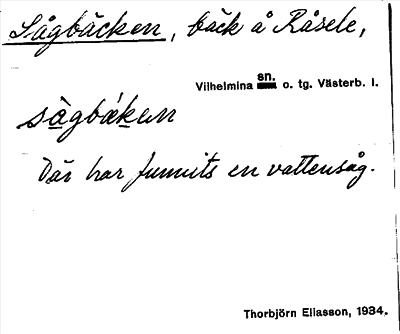 Sågbäcken, bäck å Råsele,
Vilhelmina sn. o. tg. Västerb. l.
så̀gbä́ken
Där har funnits en vattensåg.
Thorbjörn Eliasson, 1934.